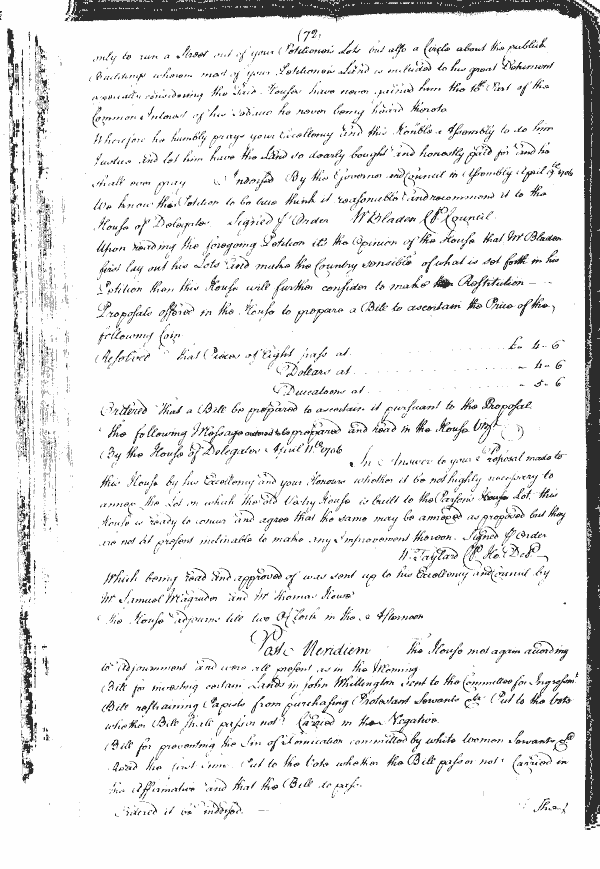 (72)
only to run a Street out of your Petitioners Lots but also a Circle about the publick
Buildings wherein most of your Petitioners Land is included to his great Detriment
especially considering the said Houses have never gained him the 10th Part of the
Common Interest of his Tobacco he never being heard thereto
Wherefore he humbly prays your Excellency and this Honble Assembly to do him
Justice and let him have the Land so dearly bought and honestly paid for and he
shall ever pray Indorsed By the Governor and Council in Assembly April 9th 1706
We know the Petition to be true think it reasonable and recommend it to the
House of Delegates Signed p Order W Bladen Cl Council
Upon reading the foregoing Petition it's the Opinion of the House that Mr Bladen
first lay out his Lots and make the Country sensible of what is set forth in his
Petition then this House will further consider to make Restitution
Proposals offered in the House to prepare a Bill to ascertain the Price of the
following Coin
Resolved that Pieces of Eight pass at £ - 4 - 6
Dollars at - 4 - 6
Ducatoons at - 5 - 6
Ordered that a Bill be prepared to ascertain it pursuant to the Proposal
the following Message prepared and read in the House
By the House of Delegates April 11th 1706
In Answer to your Proposal made to
this House by his Excellency and your Honours whether it be not highly necessary to
annex the Lot on which the old Vestry House is built to the Parsons Lot this
House is ready to concur and agree that the same may be annexed as proposed but they
are not at present inclinable to make any Improvement thereon Signed p Order
W Taylard Cl Ho Del
Which being read and approved of was sent up to his Excellency and Council by
Mr Samuel Magruder and Mr Thomas Howe
The House adjourns till two of Clock in the Afternoon
Post Meridiem the House met again according
to adjournment and were all present as in the Morning
Bill for investing certain Lands in John Whittington sent to the Committee for Ingrossmt
Bill restraining Papists from purchasing Protestant Servants &c Put to the Vote
whether Bill shall pass or not Carried in the Negative
Bill for preventing the Sin of Fornication committed by white Women Servants &c
Read the first time Put to the Vote whether the Bill pass or not Carried in
the Affirmative and that the Bill do pass
Ordered it be indorsed
The